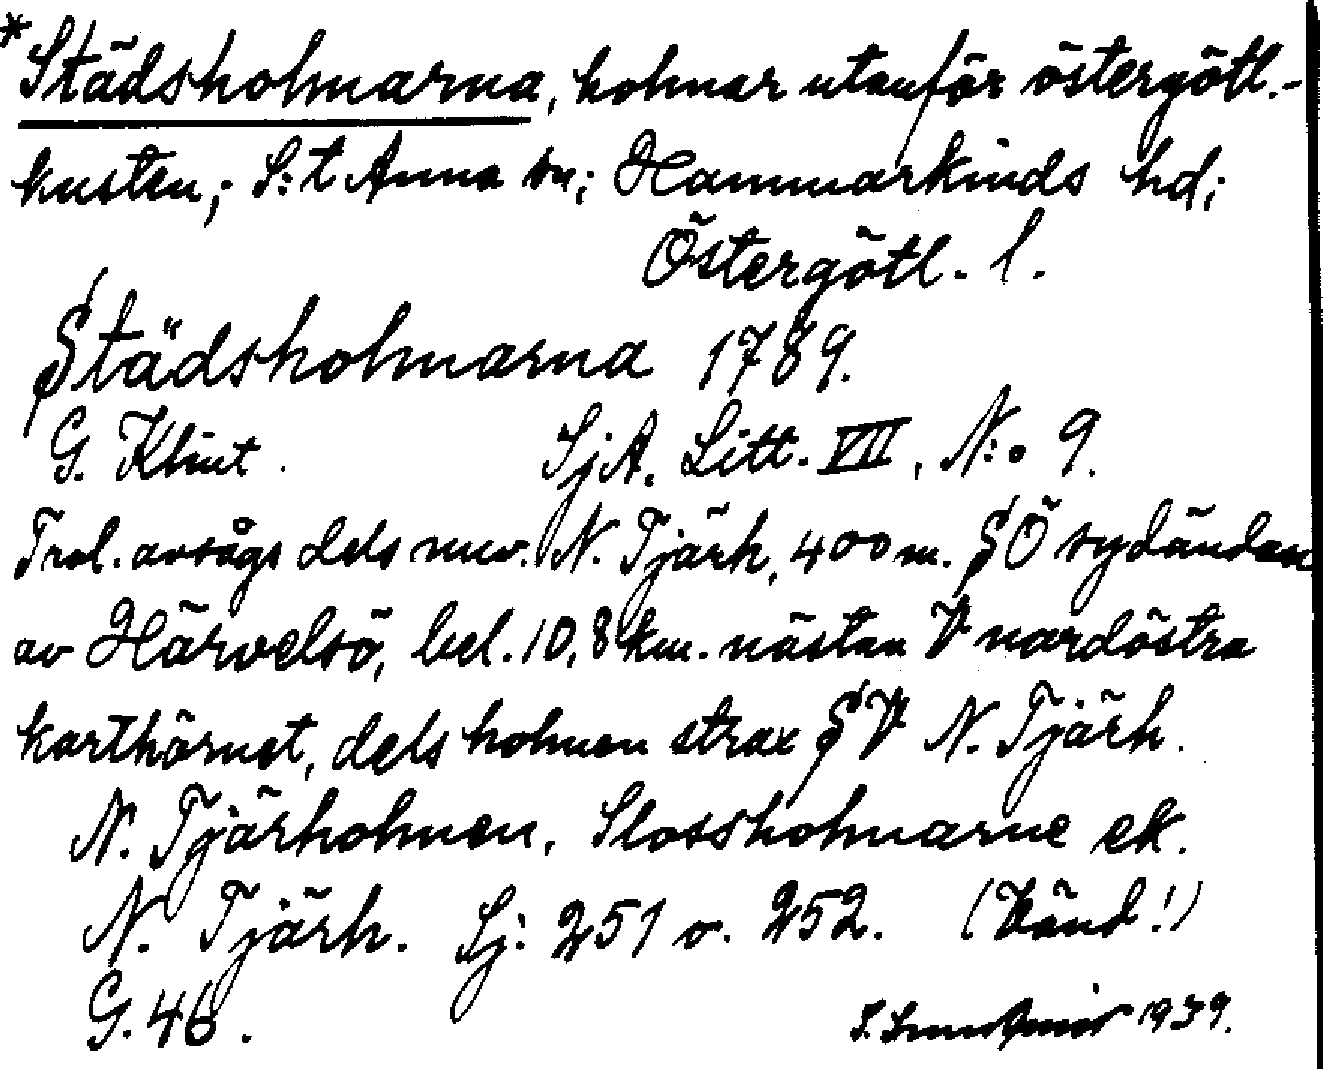 *Städsholmarna, holmar utanför östergötl.-
kusten; S:t Anna sn; Hammarkinds hd;
Östergötl. l.
Städsholmarna 1789.
G. Klint. SjA. Litt. VII, N:o 9.
Trol. avsågs dels nuv. N. Tjärh, 400 m. SÖ sydändan
av Härvelsö, bel. 10,8 km. nästan V nordöstra
karthörnet, dels holmen strax SV N. Tjärh.
N. Tjärholmen. Slossholmarne ek.
N. Tjärh. Sj: 251 o. 252. (Vänd!)
G. 46. 1939.